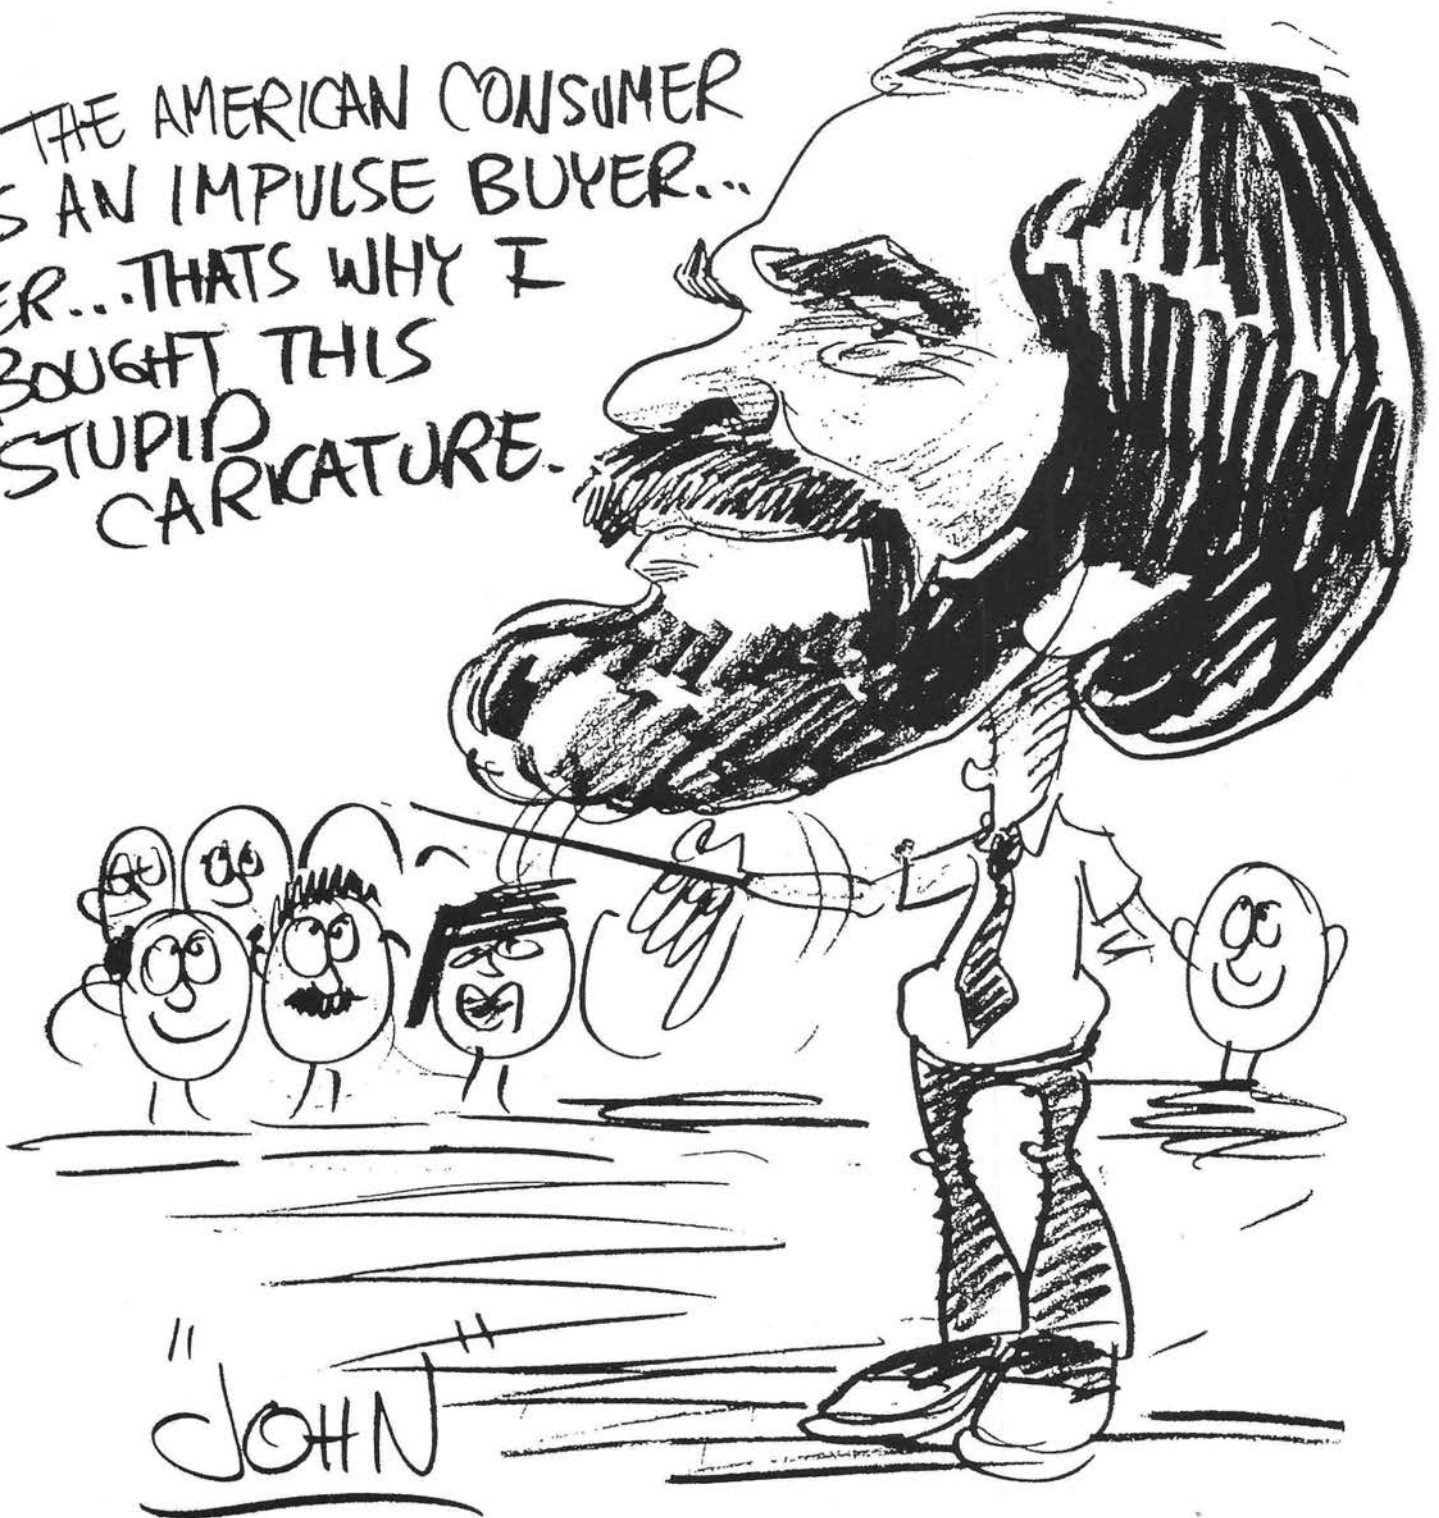 THE AMERICAN CONSUMER
S AN IMPULSE BUYER...
ER...THATS WHY I
BOUGHT THIS
STUPID
CARICATURE.
"JOHN"